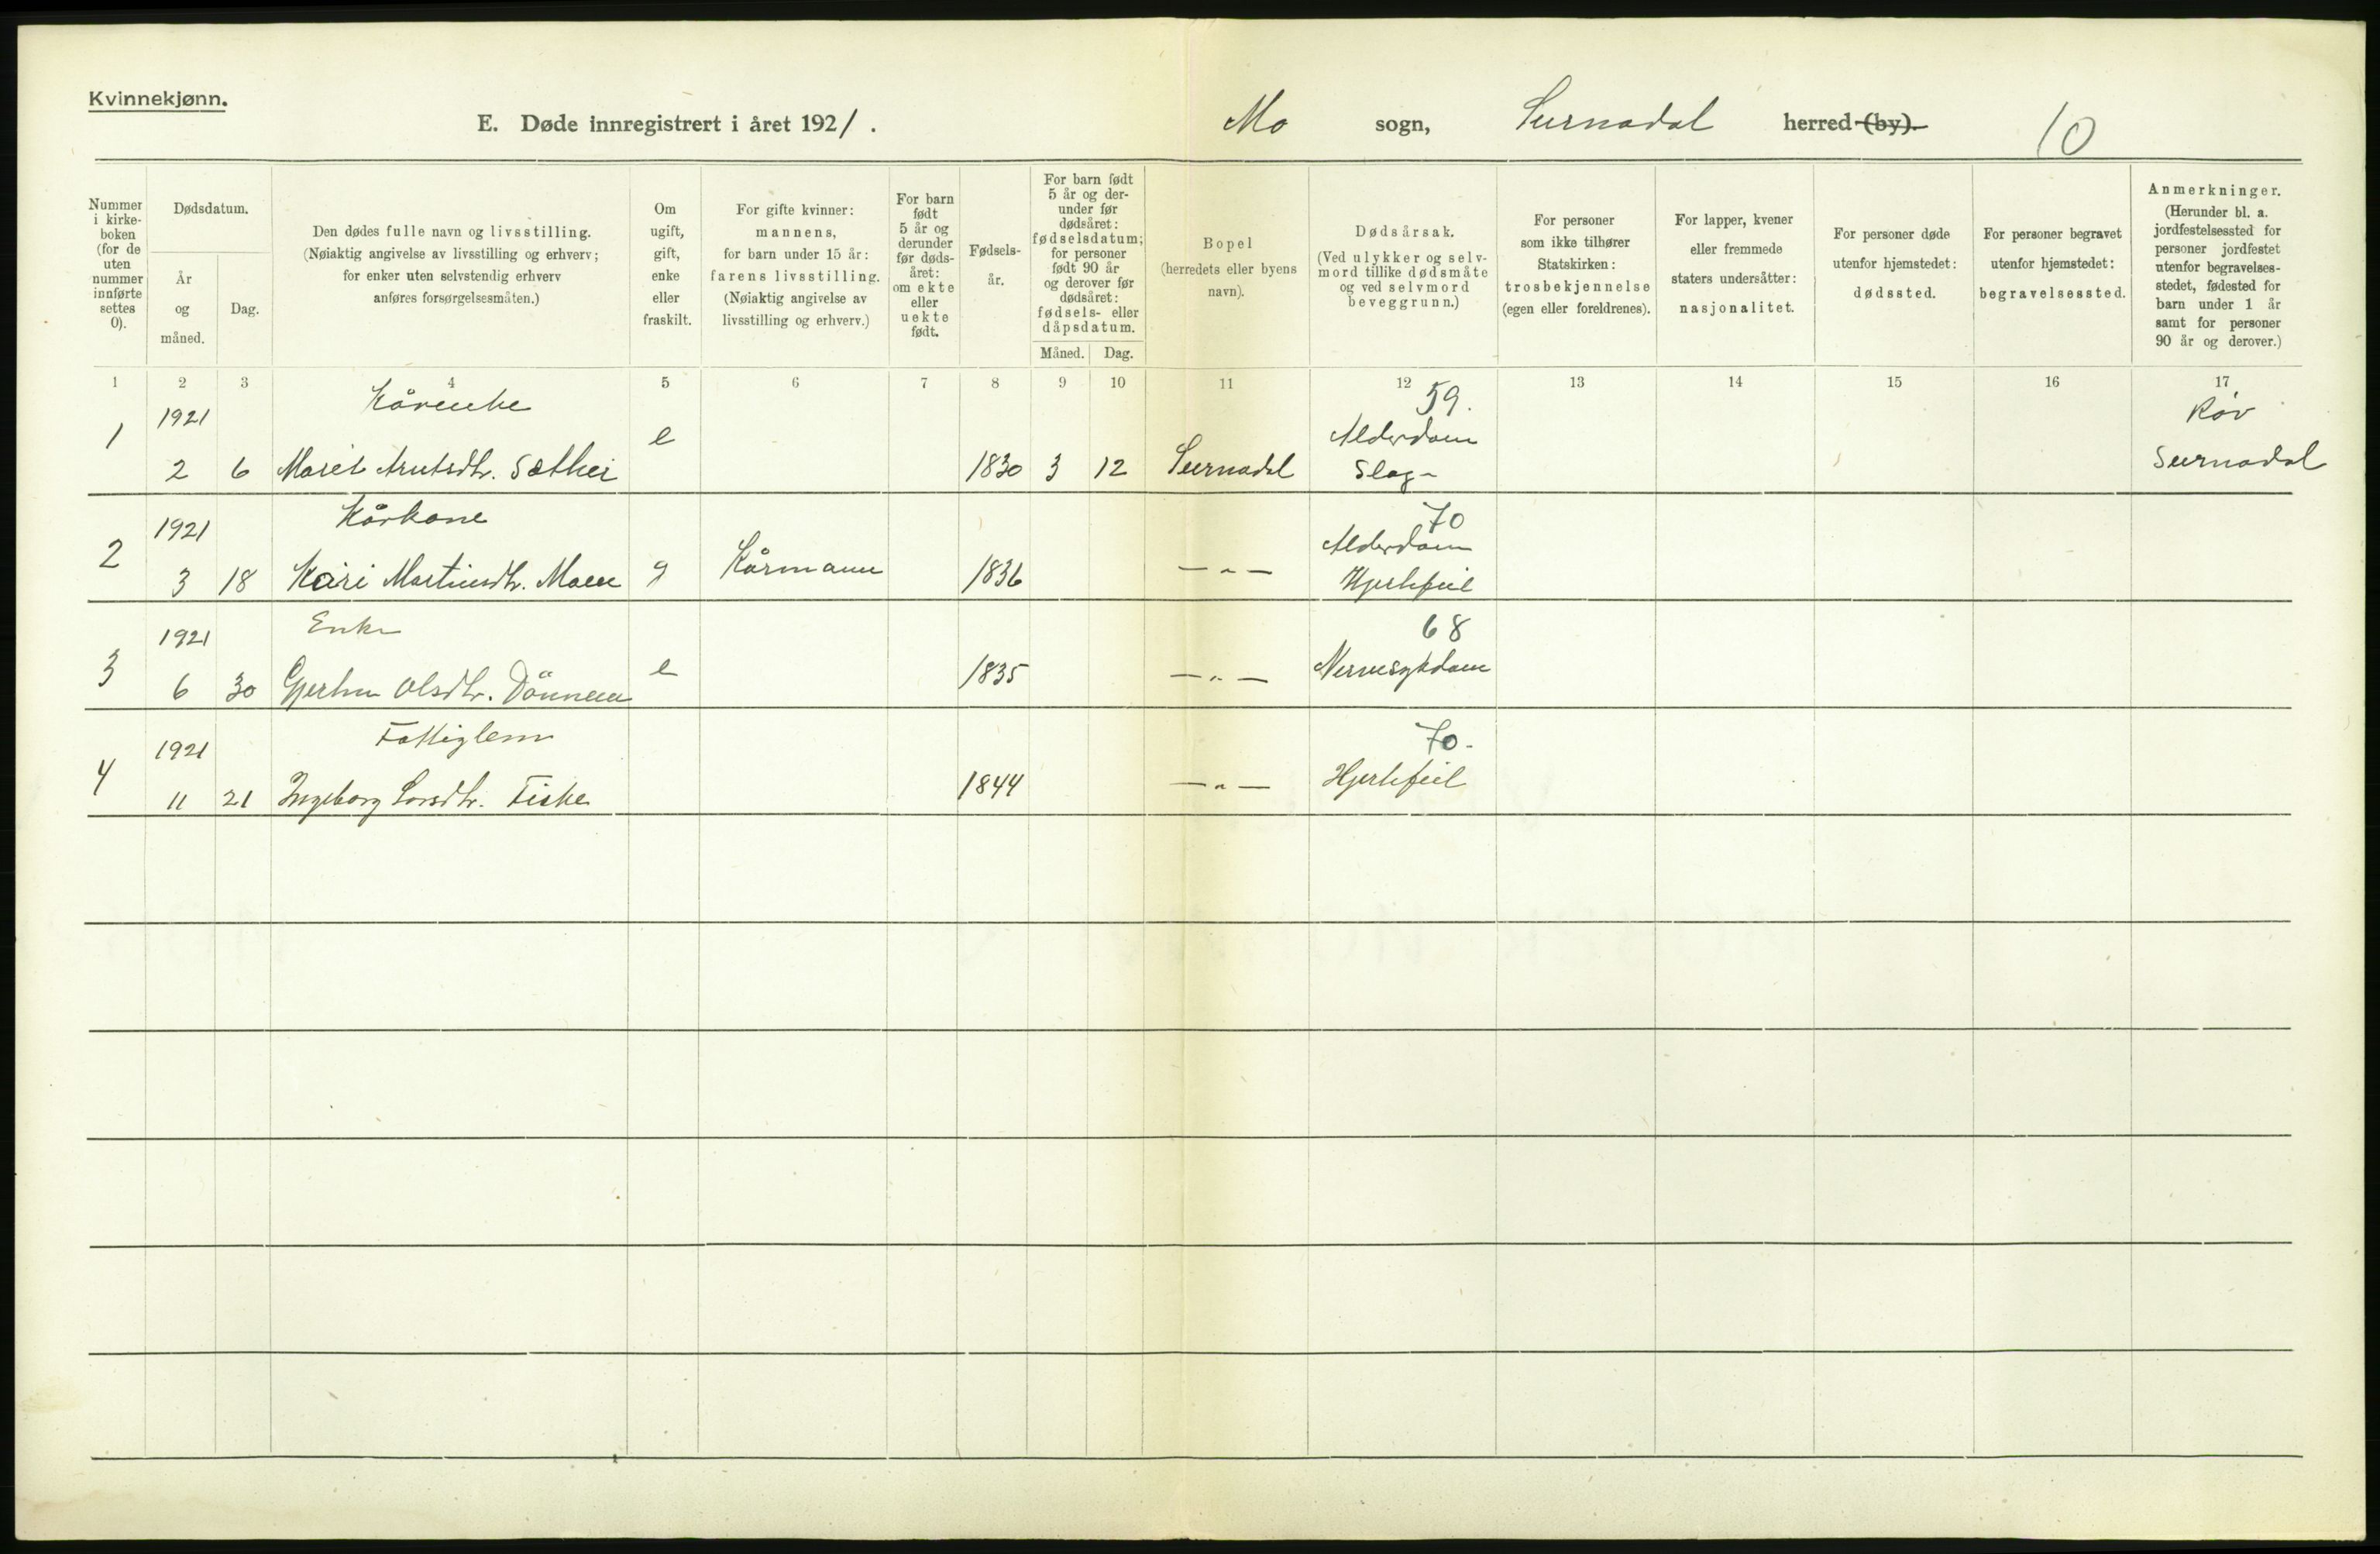 Kvinnekjønn.
E. Døde innregistrert i året 1921. Mo sogn, Surnadal herred (by). 10
Nummer i kirkeboken (for de uten nummer innførte settes 0).
Dødsdatum.
År og måned.
Dag.
Den dødes fulle navn og livsstilling. (Nøiaktig angivelse av livsstilling og erhverv; for enker uten selvstendig erhverv anføres forsørgelsesmåten.)
Om ugift, gift, enke eller fraskilt.
For gifte kvinner: mannens, for barn under 15 år: farens livsstilling. (Nøiaktig angivelse av livsstilling og erhverv.)
For barn født 5 år og derunder før dødsåret: om ekte eller uekte født.
Fødselsår.
For barn født 5 år og derunder før dødsåret: fødselsdatum; for personer født 90 år og derover før dødsåret: fødsels- eller dåpsdatum.
Måned. Dag.
Bopel (herredets eller byens navn).
Dødsårsak. (Ved ulykker og selvmord tillike dødsmåte og ved selvmord beveggrunn.)
For personer som ikke tilhører Statskirken: trosbekjennelse (egen eller foreldrenes).
For lapper, kvener eller fremmede staters undersåtter: nasjonalitet.
For personer døde utenfor hjemstedet: dødssted.
For personer begravet utenfor hjemstedet: begravelsessted.
Anmerkninger. (Herunder bl. a. jordfestelsessted for personer jordfestet utenfor begravelsesstedet, fødested for barn under 1 år samt for personer 90 år og derover.)
1 2 3 4 5 6 7 8 9 10 11 12 13 14 15 16 17
1921 Kårenke 59. Røv
1 e Alderdom
2 6 Marit Arntsdtr. Sæther 1830 3 12 Surnadal Slag- Surnadal
1921 Kårkone 70
2 Alderdom
3 18 Kari Martinsdtr. Moen g Kårmann 1836 — " — Hjertefeil
1921 Enke 68
3 e Nervesykdom
6 30 Olsdtr. Dönnem 1835 — " —
1921 Fattiglem 70.
4 Hjertefeil
11 21 Ingeborg Larsdtr. Fiske 1844 — " —